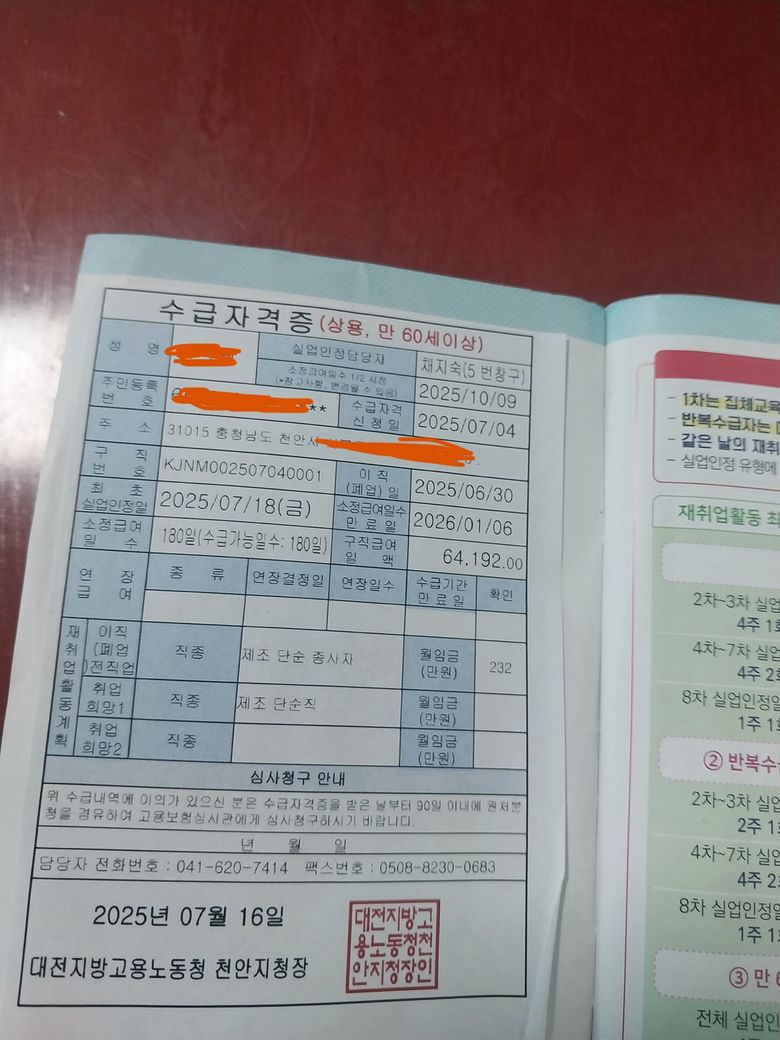 수급자격증(상용, 만 60세이상)
성 명
실업인정담당자
채지숙(5 번창구)
소정급여일수 1/2 시점
(*참고사항, 변경될 수 있음)
2025/10/09
주민등록
번 호
**
수급자격
신청일
2025/07/04
주 소
31015 충청남도 천안시
구 직
번 호
KJNM002507040001
이 직
(폐업) 일
2025/06/30
최 초
실업인정일
2025/07/18(금)
소정급여일수
만 료 일
2026/01/06
소정급여
일 수
180일(수급가능일수: 180일)
구직급여
일 액
64,192.00
연 장
급 여
종 류
연장결정일
연장일수
수급기간
만 료 일
확인
재취업활동계획
이직
(폐업
)전직업
직종
제조 단순 종사자
월임금
(만원)
232
취업
희망1
직종
제조 단순직
월임금
(만원)
취업
희망2
직종
월임금
(만원)
심사청구 안내
위 수급내역에 이의가 있으신 분은 수급자격증을 받은 날부터 90일 이내에 원처분
청을 경유하여 고용보험심사관에게 심사청구하시기 바랍니다.
년 월 일
담당자 전화번호 : 041-620-7414 팩스번호 : 0508-8230-0683
2025년 07월 16일
대전지방고용노동청 천안지청장
대전지방고
용노동청천
안지청장인
- 1차는 집체교육
- 반복수급자는
- 같은 날의 재취
- 실업인정 유형에
재취업활동 최
2차~3차 실업
4주 1회
4차~7차 실업
4주 2회
8차 실업인정일
1주 1회
② 반복수급
2차~3차 실업
2주 1
4차~7차 실업
4주 2
8차 실업인정일
1주 1
③ 만 6
전체 실업인